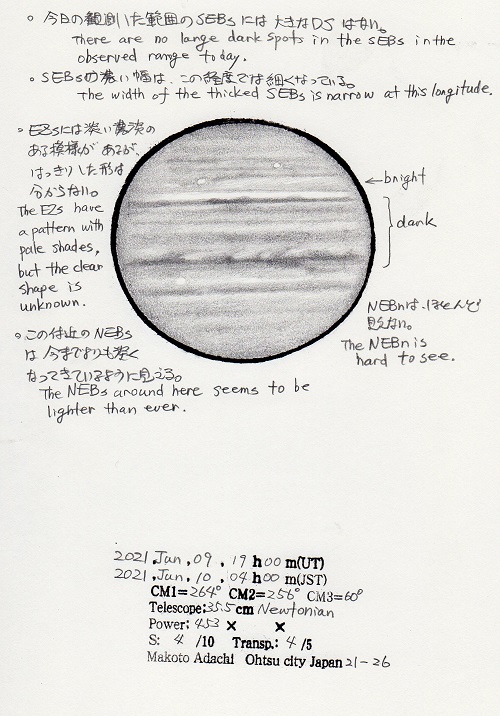 ○ 今日の観測した範囲のSEBsには大きなDSはない。
There are no lange dark spots in the SEBs in the
observed range today.
○ SEBsの濃い幅は、この経度では細くなっている。
The width of the thicked SEBs is narrow at this longitude.
○ EZsには淡い濃淡の
ある模様があるが、
はっきりした形は
分からない。
The EZs have
a pattern with
pale shades,
but the clear
shape is
unknown.
← bright
dark
NEBnは、ほとんど
見えない。
The NEBn is
hard to see.
○ この付近のNEBs
は今までよりも淡く
なってきているように見える。
The NEBs around here seems to be
lighter than ever.
2021.Jun.09.19h00m(UT)
2021.Jun.10.04h00m(JST)
CM1=264° CM2=256° CM3=60°
Telescope:35.5cm Newtonian
Power:453× ×
S: 4 /10 Transp.: 4 /5
Makoto Adachi Ohtsu city Japan 21-26